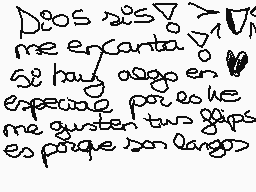 Dios sis
me encanta
si hay algo en
especial por lo ke
me gusten tus flips
es porque son largos